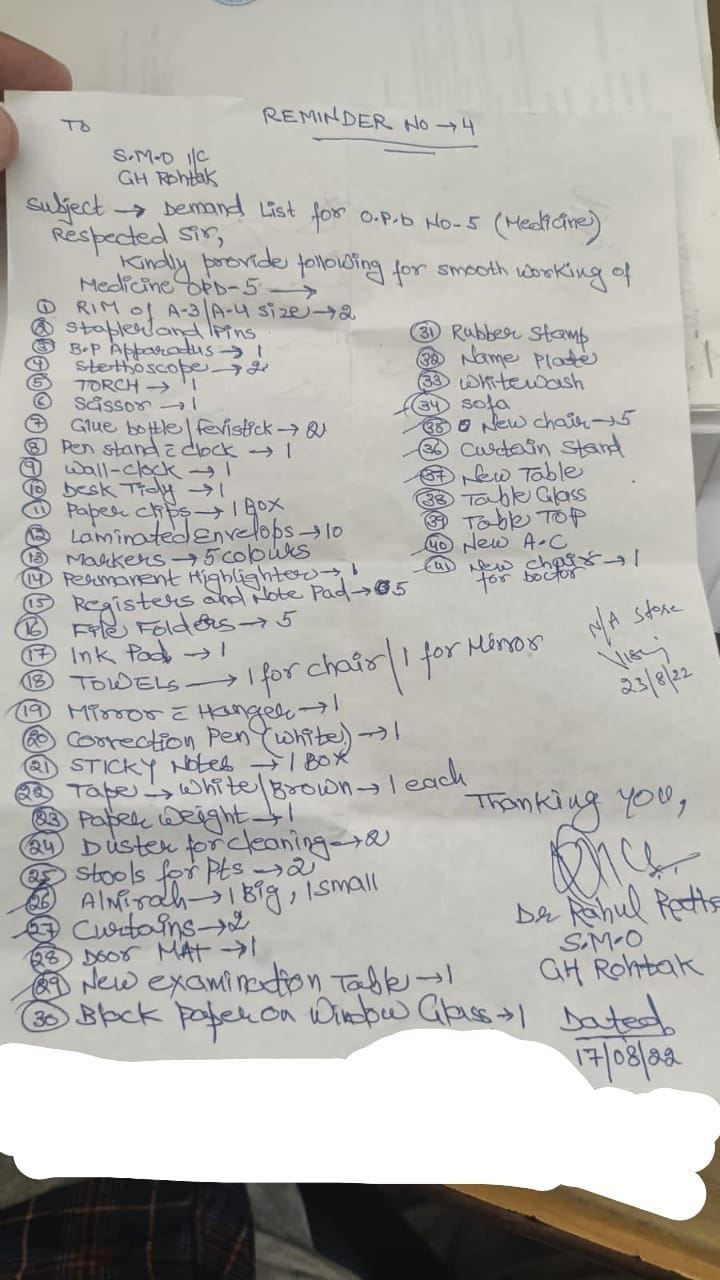 REMINDER No → 4
To
S.M.O I/C
GH Rohtak
Subject → Demand List for O.P.D No-5 (Medicine)
Respected Sir,
Kindly provide following for smooth working of
Medicine OPD-5 →
① RIM of A-3/A-4 size → 2
② Stapler and Pins
③ B.P Apparadus → 1
④ Stethoscope → 2
⑤ TORCH → 1
⑥ Scissor → 1
⑦ Glue bottle/fevistick → 2
⑧ Pen stand c̄ clock → 1
⑨ Wall-clock → 1
⑩ Desk Tidy → 1
⑪ Paper clips → 1 Box
⑫ Laminated Envelops → 10
⑬ Markers → 5 colours
⑭ Permanent Highlighter → 1
⑮ Registers and Note Pad → 5
⑯ File Folders → 5
⑰ Ink Pad → 1
⑱ TOWELs → 1 for chair/1 for Mirror
⑲ Mirror c̄ Hanger → 1
⑳ Correction Pen (white) → 1
㉑ STICKY Notes → 1 Box
㉒ Tape → White/Brown → 1 each
㉓ Paper Weight → 1
㉔ Duster for cleaning → 2
㉕ Stools for Pts → 2
㉖ Almirah → 1 Big, 1 small
㉗ Curtains → 2
㉘ Door MAT → 1
㉙ New examination Table → 1
㉚ Black Paper on Window Glass → 1
㉛ Rubber Stamp
㉜ Name Plate
㉝ Whitewash
㉞ Sofa
㉟ New chair → 5
㊱ Curtain Stand
㊲ New Table
㊳ Table Glass
㊴ Table TOP
㊵ New A.C
㊶ New chair → 1
for Doctor
N/A store
23/8/22
Thanking you,
Dr Rahul
S.M.O
GH Rohtak
Dated
17/08/22